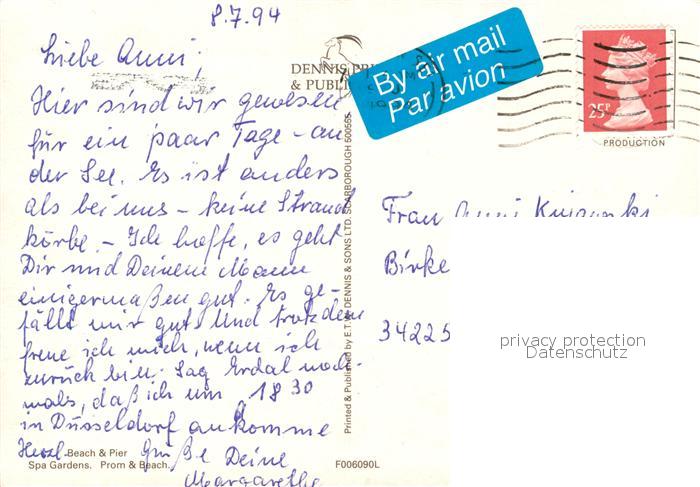 8.7.94
Liebe Anni,
Hier sind wir gewesen
für ein paar Tage – an
der See. Es ist anders
als bei uns – keine Strand
körbe. – Ich hoffe, es geht
Dir und Deinem Mann
einigermaßen gut. Es ge-
fällt mir gut. Und trotzdem
freue ich mich, wenn ich
zurück bin. Sag Erdal noch-
mals, daß ich um 18 30
in Düsseldorf ankomme
Herzl. Grüße Deine
Margarethe
DENNIS
& PUBL
By air mail
Par avion
25P
PRODUCTION
Frau Anni
Birke
34225
privacy protection
Datenschutz
Printed & Published by E.T.W. DENNIS & SONS LTD. SCARBOROUGH 500565
Beach & Pier
Spa Gardens. Prom & Beach.
F006090L